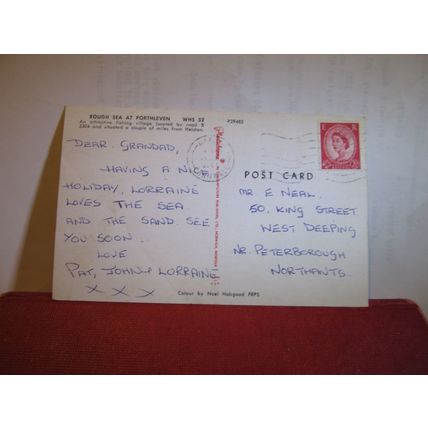 ROUGH SEA AT PORTHLEVEN WHS 52
An attractive fishing village located by road B
2304 and situated a couple of miles from Helston.
DEAR GRANDAD,
HAVING A NICE
HOLIDAY, LORRAINE
LOVES THE SEA
AND THE SAND. SEE
YOU SOON.
LOVE
PAT, JOHN & LORRAINE
X X X
POST CARD
MR E NEAL.
50, KING STREET
WEST DEEPING
NR. PETERBOROUGH
NORTHANTS.
Colour by Noel Habgood FRPS